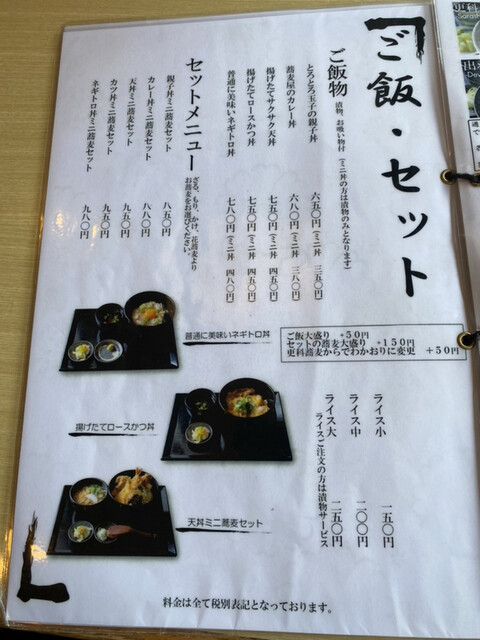 ご飯・セット
ご飯物 漬物、お吸い物付(ミニ丼の方は漬物のみとなります)
とろとろ玉子の親子丼 六五〇円(ミニ丼 三五〇円)
蕎麦屋のカレー丼 六八〇円(ミニ丼 三八〇円)
揚げたてサクサク天丼 七五〇円(ミニ丼 四五〇円)
揚げたてロースかつ丼 七五〇円(ミニ丼 四五〇円)
普通に美味いネギトロ丼 七八〇円(ミニ丼 四八〇円)
セットメニュー ざる、もり、かけ、花蕎麦より
お蕎麦をお選びください。
親子丼ミニ蕎麦セット 八五〇円
カレー丼ミニ蕎麦セット 八八〇円
天丼ミニ蕎麦セット 九五〇円
カツ丼ミニ蕎麦セット 九五〇円
ネギトロ丼ミニ蕎麦セット 九八〇円
普通に美味いネギトロ丼
揚げたてロースかつ丼
天丼ミニ蕎麦セット
ご飯大盛り +50円
セットの蕎麦大盛り +150円
更科蕎麦からでわかおりに変更 +50円
ライス小 一五〇円
ライス中 二〇〇円
ライス大 二五〇円
ライスご注文の方は漬物サービス
料金は全て税別表記となっております。
更科